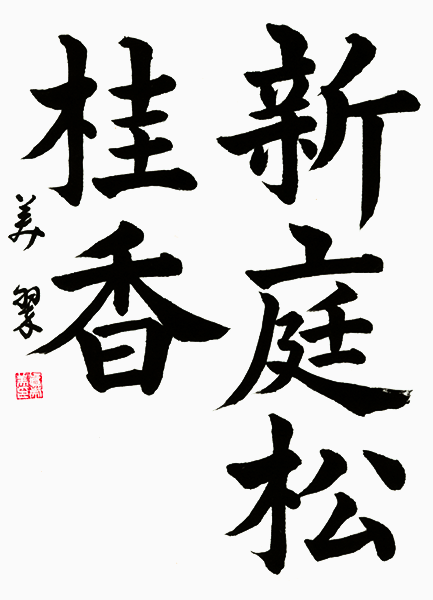 新庭松
桂香
美翠